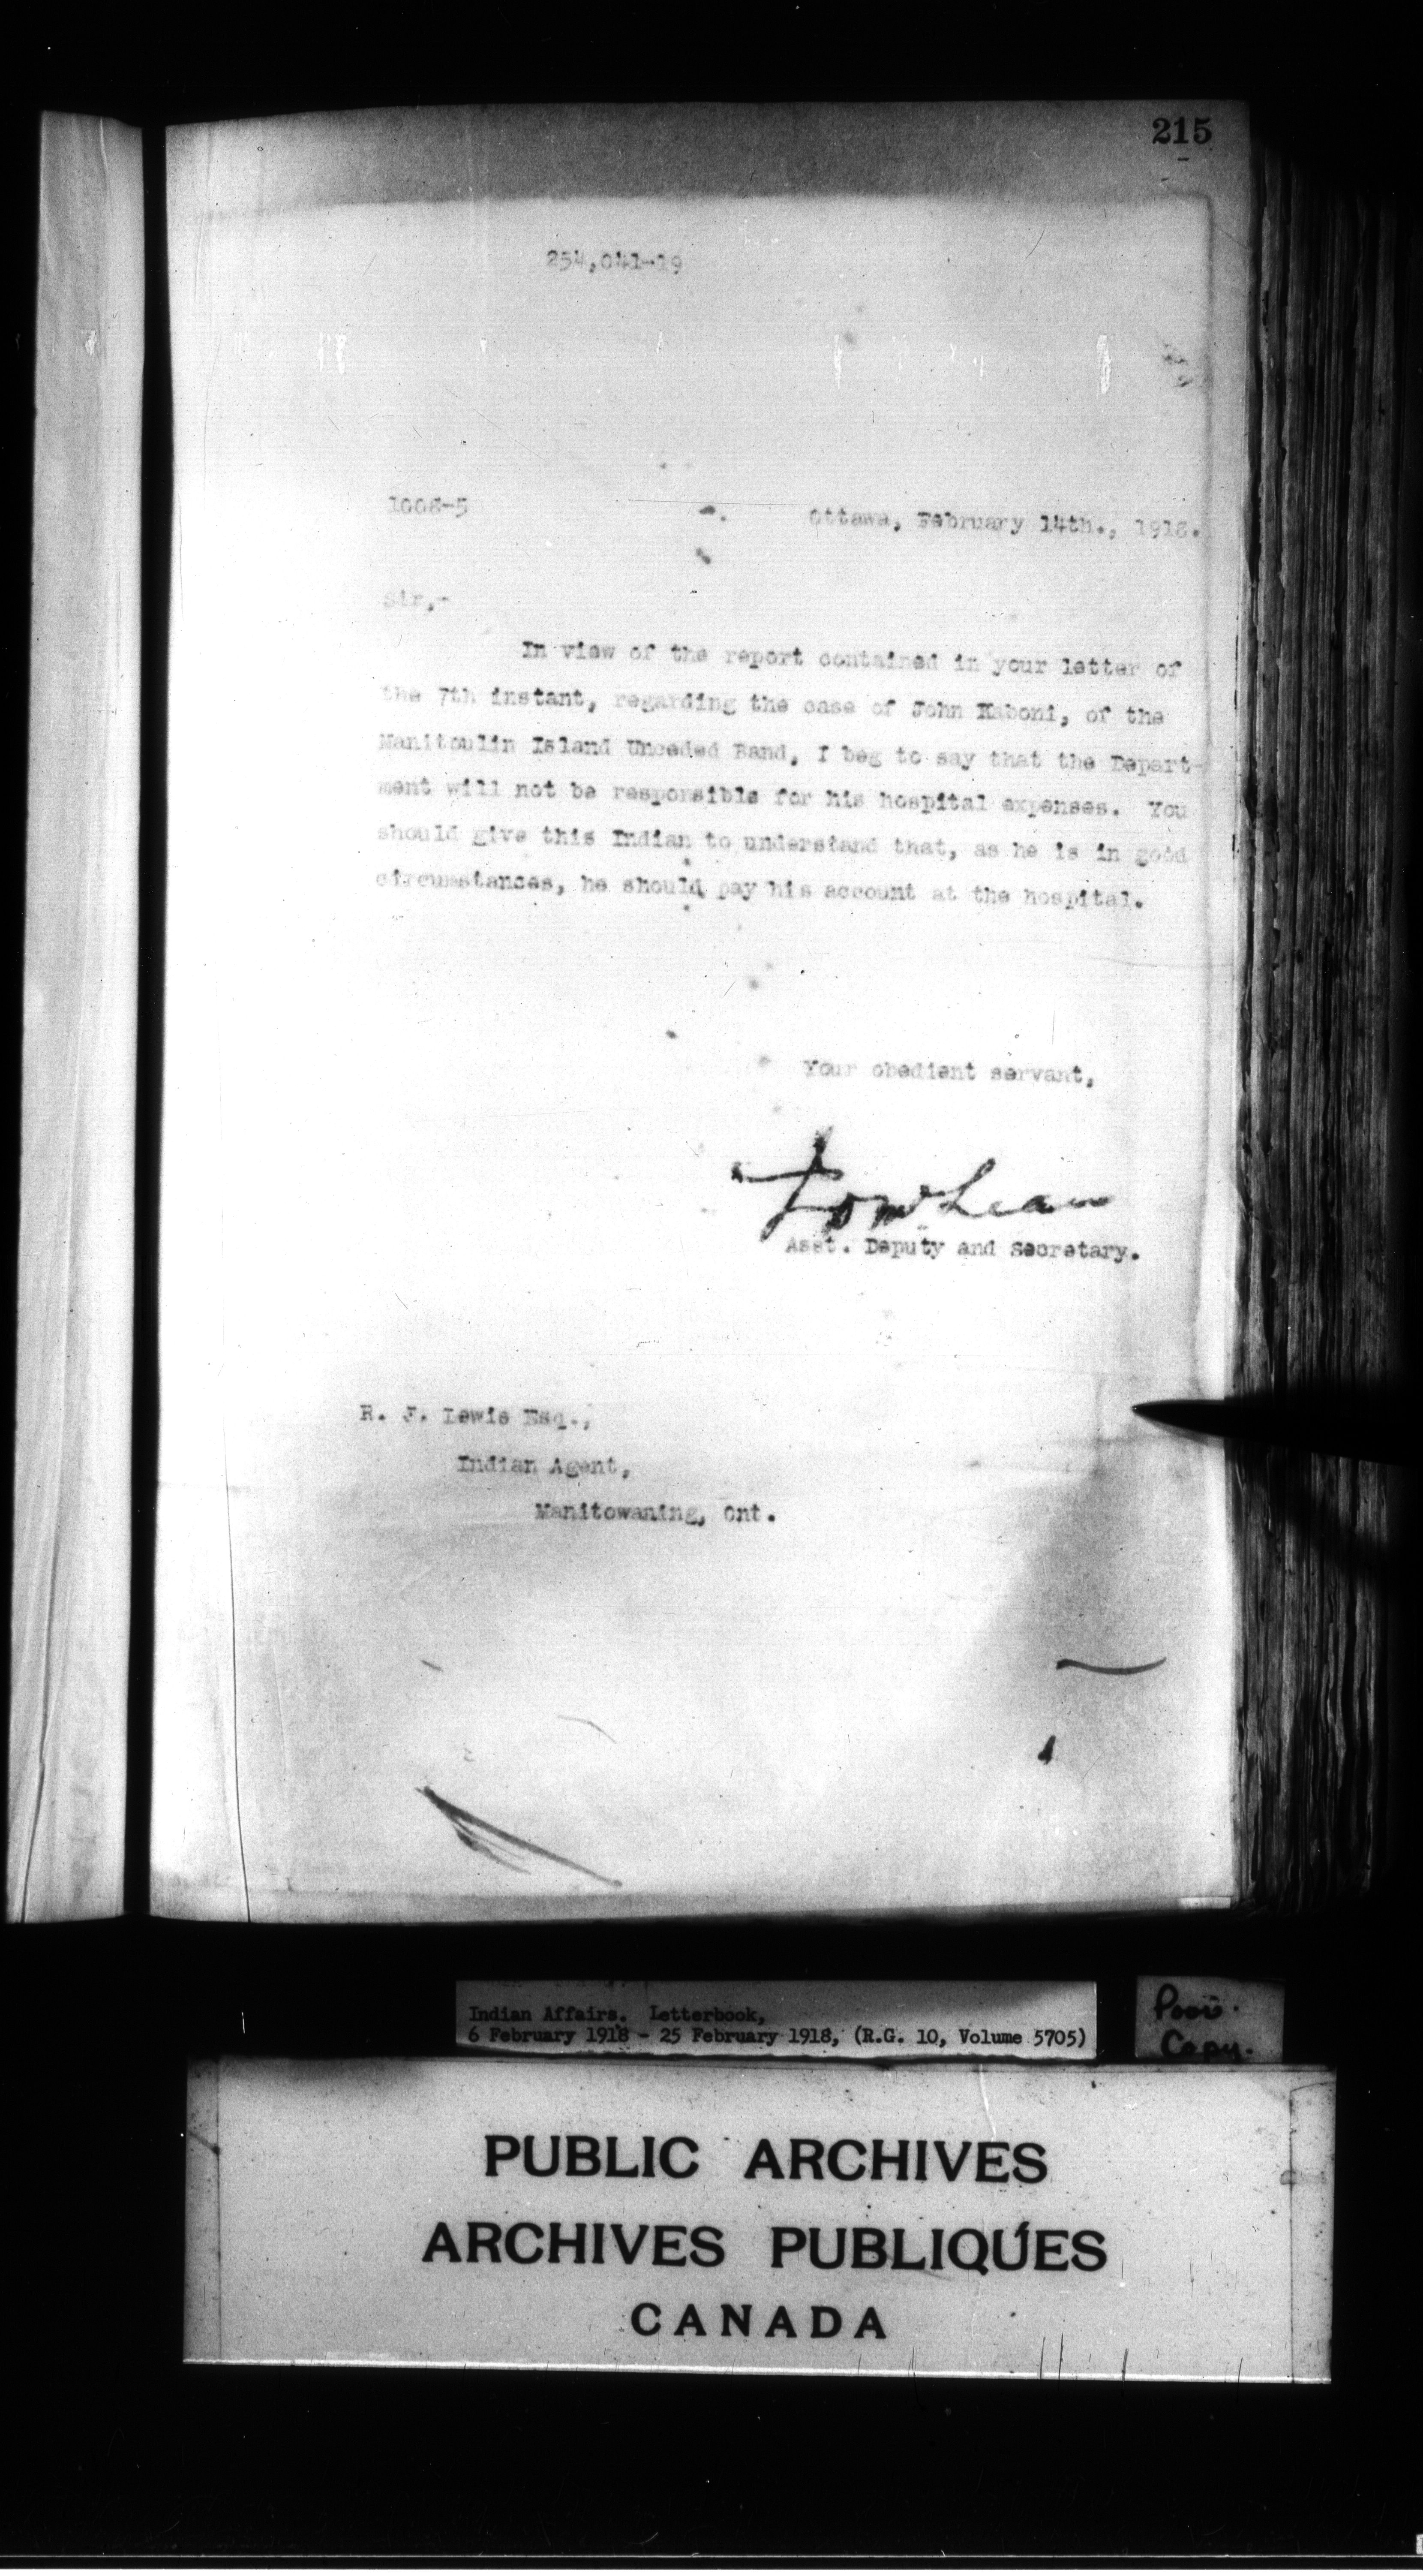 215
254,041-19
1008-5
Ottawa, February 14th., 1918.
Sir,-
In view of the report contained in your letter of
the 7th instant, regarding the case of John Kaboni, of the
Manitoulin Island Unceded Band, I beg to say that the Depart-
ment will not be responsible for his hospital expenses. You
should give this Indian to understand that, as he is in good
circumstances, he should pay his account at the hospital.
Your obedient servant,
Asst. Deputy and Secretary.
R. J. Lewis Esq.,
Indian Agent,
Manitowaning, Ont.
Indian Affairs. Letterbook,
6 February 1918 - 25 February 1918, (R.G. 10, Volume 5705)
Poor
Copy.
PUBLIC ARCHIVES
ARCHIVES PUBLIQUES
CANADA